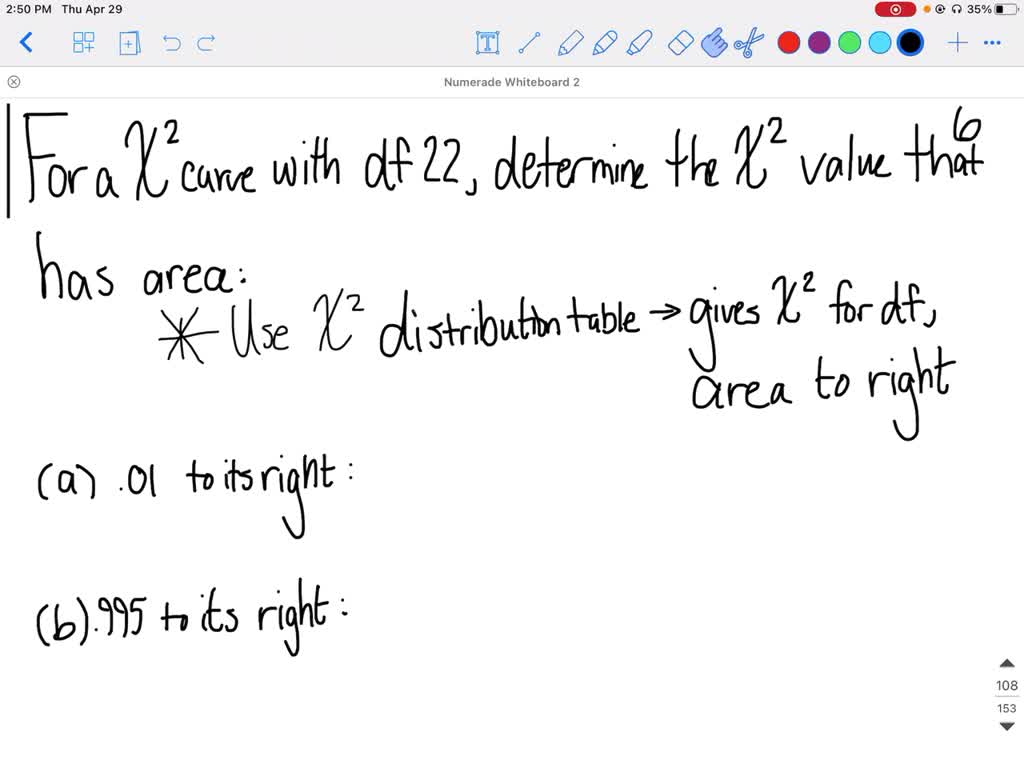 2:50 PM Thu Apr 29 35%
Numerade Whiteboard 2
6
For a χ² curve with df 22, determine the χ² value that
has area:
* Use χ² distribution table → gives χ² for df,
area to right
(a) .01 to its right:
(b) .995 to its right:
108
153